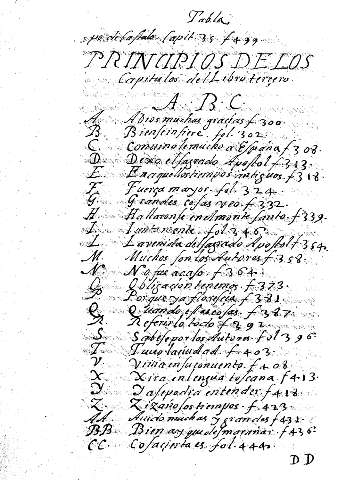 Tabla
Capit. 35. f 499.
PRINCIPIOS DE LOS
Capitulos del Libro terzero
A B C
A. A Dios muchas gracias f 300.
B. Bien se infiere fol. 302.
C. Conuino le mucho a España f 308.
D. Dexo el sagrado Apostol f 313.
E. En aquellos tiempos antiguos. f 318.
F. Fuerça mayor. fol. 324.
G. Grandes cosas veo. f 332.
H. Hallaronse en el monte santo. f 339.
I. fol. 346.
L. La venida del sagrado Apostol f 354.
M. Muchos son los Autores f 358.
N. No fue acaso. f 364.
O. Obligacion tenemos f 373.
P. Porque ya florescia f 381.
Q. Quando estas cosas f 387.
R. Referirlo todo f 392.
S. Sabese por los Autores fol 396.
T. Tuuo la ciudad. f 403.
V. Vinia en su conuento f 408.
X. Xira en lengua toscana f 413.
Y. Ya se podra entender. f 418.
Z. Zizaños los tiempos. f 423.
AA. Auido muchas y grandes f 431.
BB. Bien ay que desmarañar. f 436.
CC. Cosa cierta es fol. 444.
DD